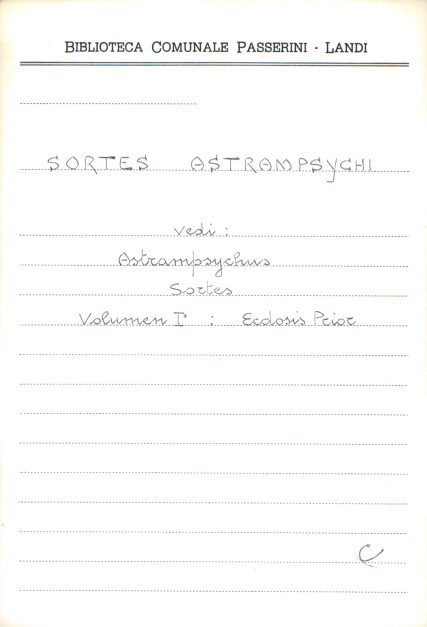 BIBLIOTECA COMUNALE PASSERINI - LANDI
SORTES ASTRAMPSYCHI
vedi :
Astrampsychus
Sortes
Volumen I° : Ecdosis Prior
C